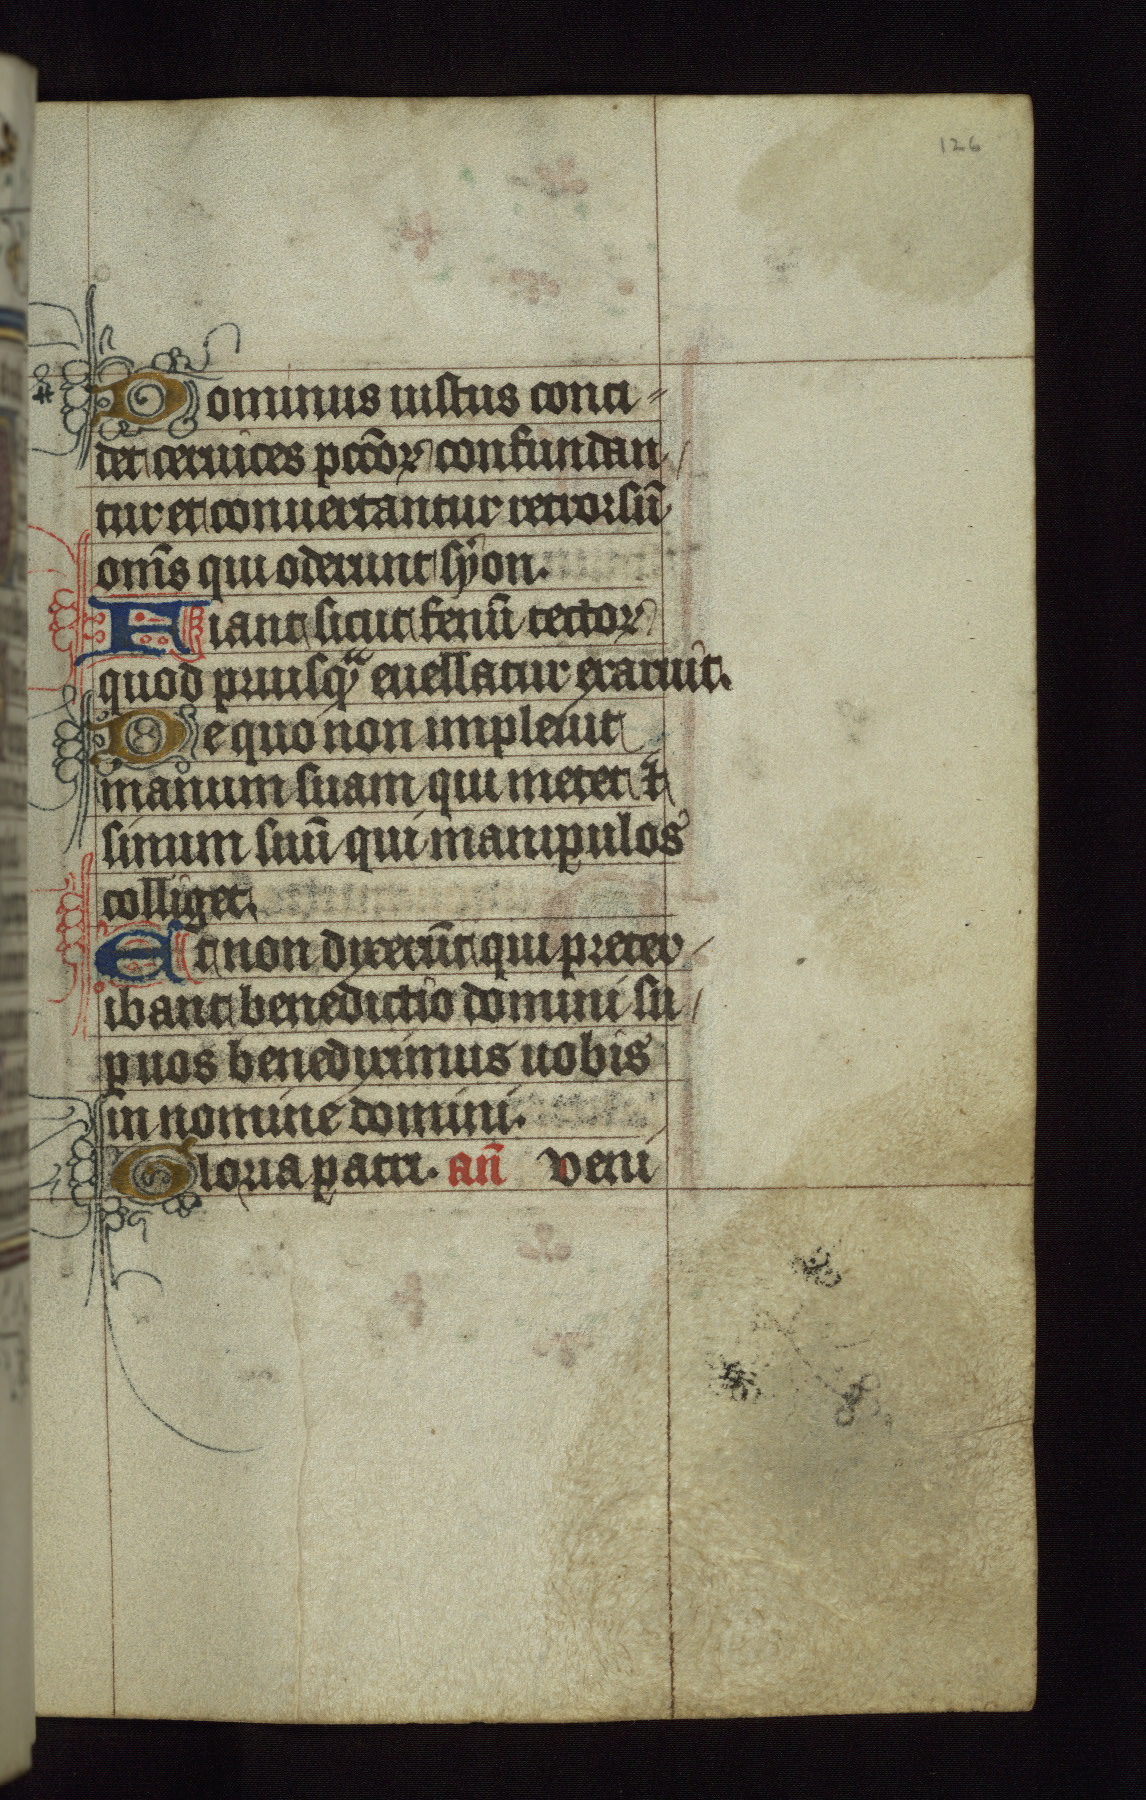 126
Dominus iustus conci-
det ceruices pccōꝝ confundan
tur et conuertantur retrorsū
om̄s qui oderunt syon.
Fiant sicut fenū tectoꝝ
quod priusqᵃ euellatur exaruit.
De quo non impleuit
manum suam qui metet ⁊
sinum suū qui manipulos
colliget.
Et non dixerūt qui preter
ibant benedictio domini su
ꝑ uos benediximus uobis
in nomine domini.
Gloria patri. an̄ Veni